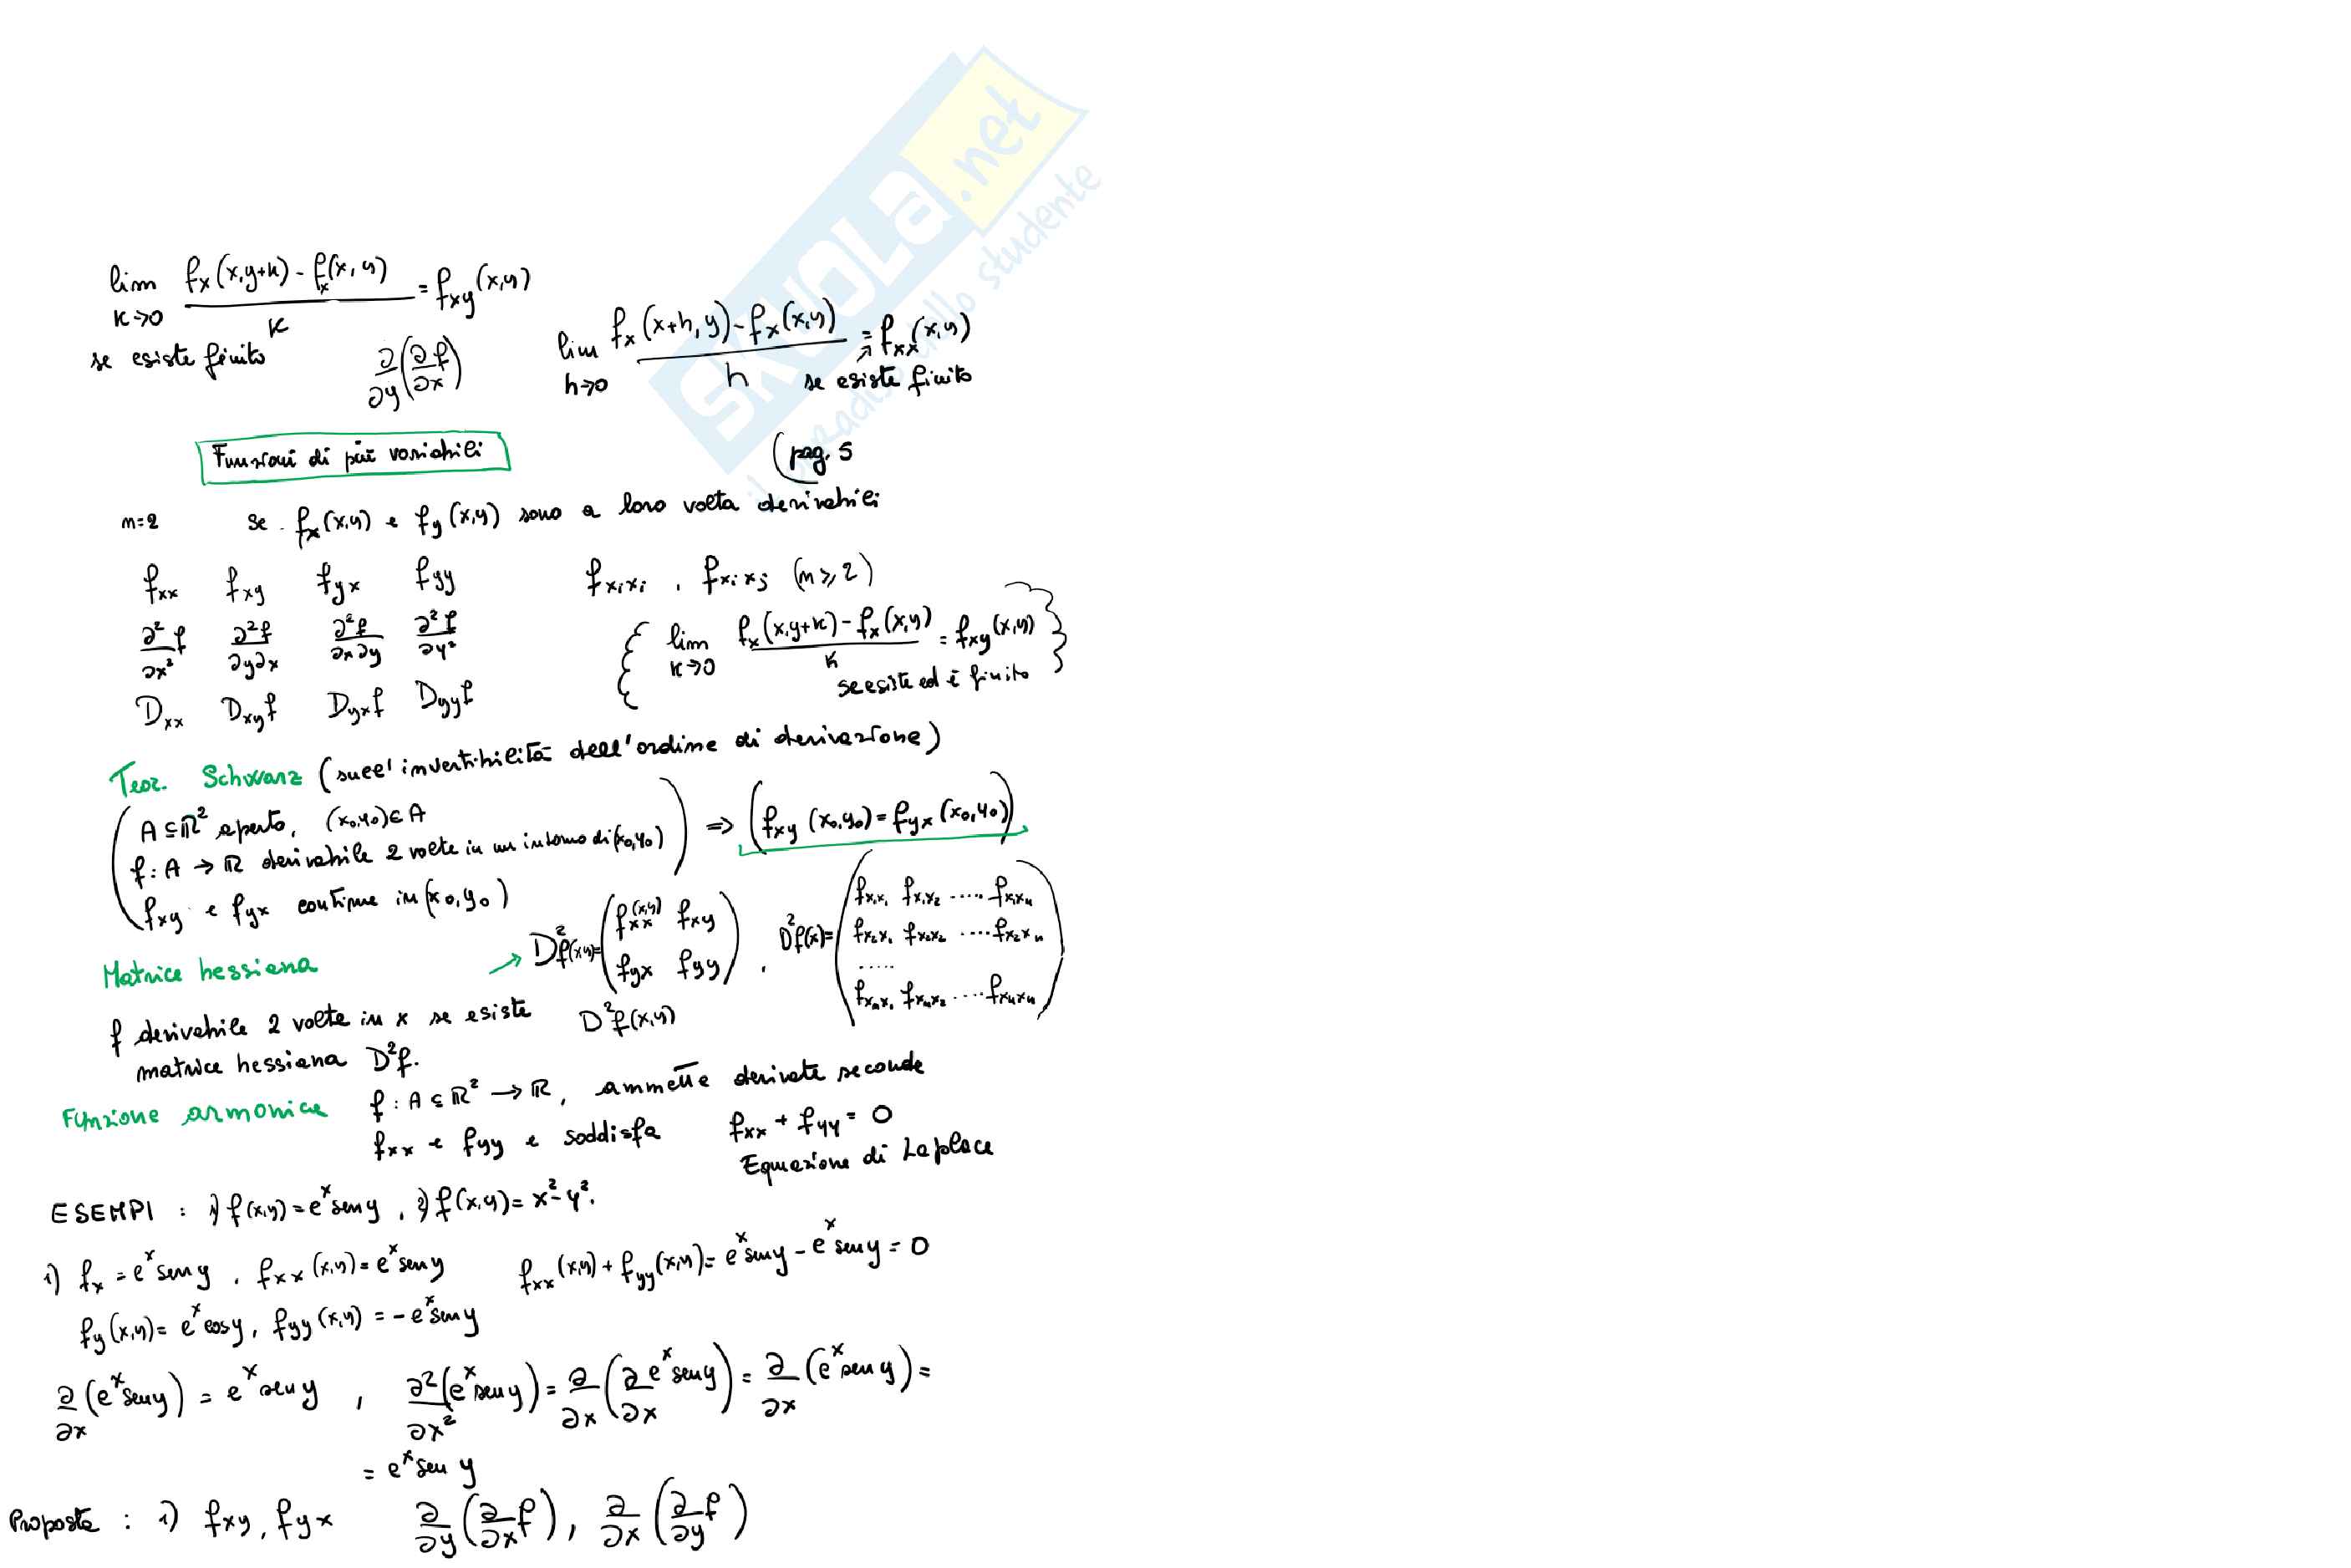 SKUOLA.net
il paradiso dello studente
lim k→0 (f_x(x,y+k) - f_x(x,y))/k = f_xy(x,y)
se esiste finito ∂/∂y(∂f/∂x)
lim h→0 (f_x(x+h,y) - f_x(x,y))/h = f_xx(x,y)
se esiste finito
Funzioni di più variabili
(pag. 5
n=2 se f_x(x,y) e f_y(x,y) sono a loro volta derivabili
f_xx f_xy f_yx f_yy f_{x_i x_i}, f_{x_i x_j} (n≥2)
∂²f/∂x² ∂²f/∂y∂x ∂²f/∂x∂y ∂²f/∂y²
{ lim k→0 (f_x(x,y+k) - f_x(x,y))/k = f_xy(x,y) }
se esiste ed è finito
D_xx D_xy f D_yx f D_yy f
Teor. Schwarz (sull'invertibilità dell'ordine di derivazione)
(A⊆ℝ² aperto, (x₀,y₀)∈A
f: A→ℝ derivabile 2 volte in un intorno di (x₀,y₀)) ⇒ (f_xy(x₀,y₀) = f_yx(x₀,y₀))
f_xy e f_yx continue in (x₀,y₀)
Matrice hessiana → D²f(x,y) = (f_xx(x,y) f_xy
f_yx f_yy), D²f(x) = (f_{x₁x₁} f_{x₁x₂} ..... f_{x₁x_n}
f_{x₂x₁} f_{x₂x₂} ..... f_{x₂x_n}
.....
f_{x_n x₁} f_{x_n x₂} ..... f_{x_n x_n})
f derivabile 2 volte in x se esiste D²f(x,y)
matrice hessiana D²f.
Funzione armonica f: A⊆ℝ² → ℝ, ammette derivate seconde
f_xx e f_yy e soddisfa f_xx + f_yy = 0
Equazione di Laplace
ESEMPI : 1) f(x,y) = e^x sen y, 2) f(x,y) = x² - y².
1) f_x = e^x sen y, f_xx(x,y) = e^x sen y f_xx(x,y) + f_yy(x,y) = e^x sen y - e^x sen y = 0
f_y(x,y) = e^x cos y, f_yy(x,y) = -e^x sen y
∂/∂x (e^x sen y) = e^x sen y, ∂²/∂x² (e^x sen y) = ∂/∂x (∂/∂x e^x sen y) = ∂/∂x (e^x sen y) =
= e^x sen y
Proposte : 1) f_xy, f_yx ∂/∂y (∂/∂x f), ∂/∂x (∂/∂y f)